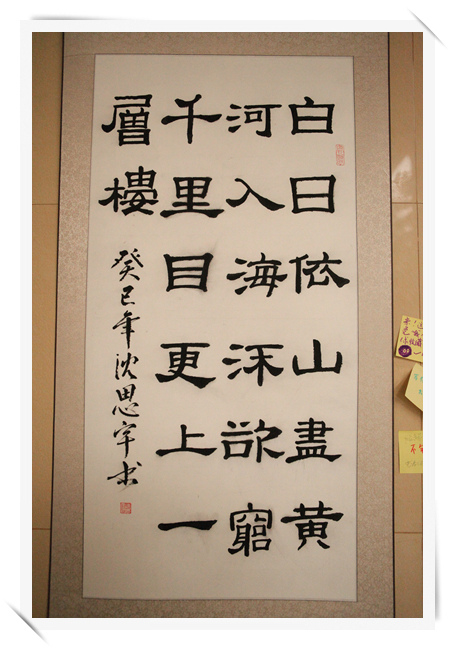 白日依山盡黃
河入海流欲窮
千里目更上一
層樓
癸巳年沈思宇书